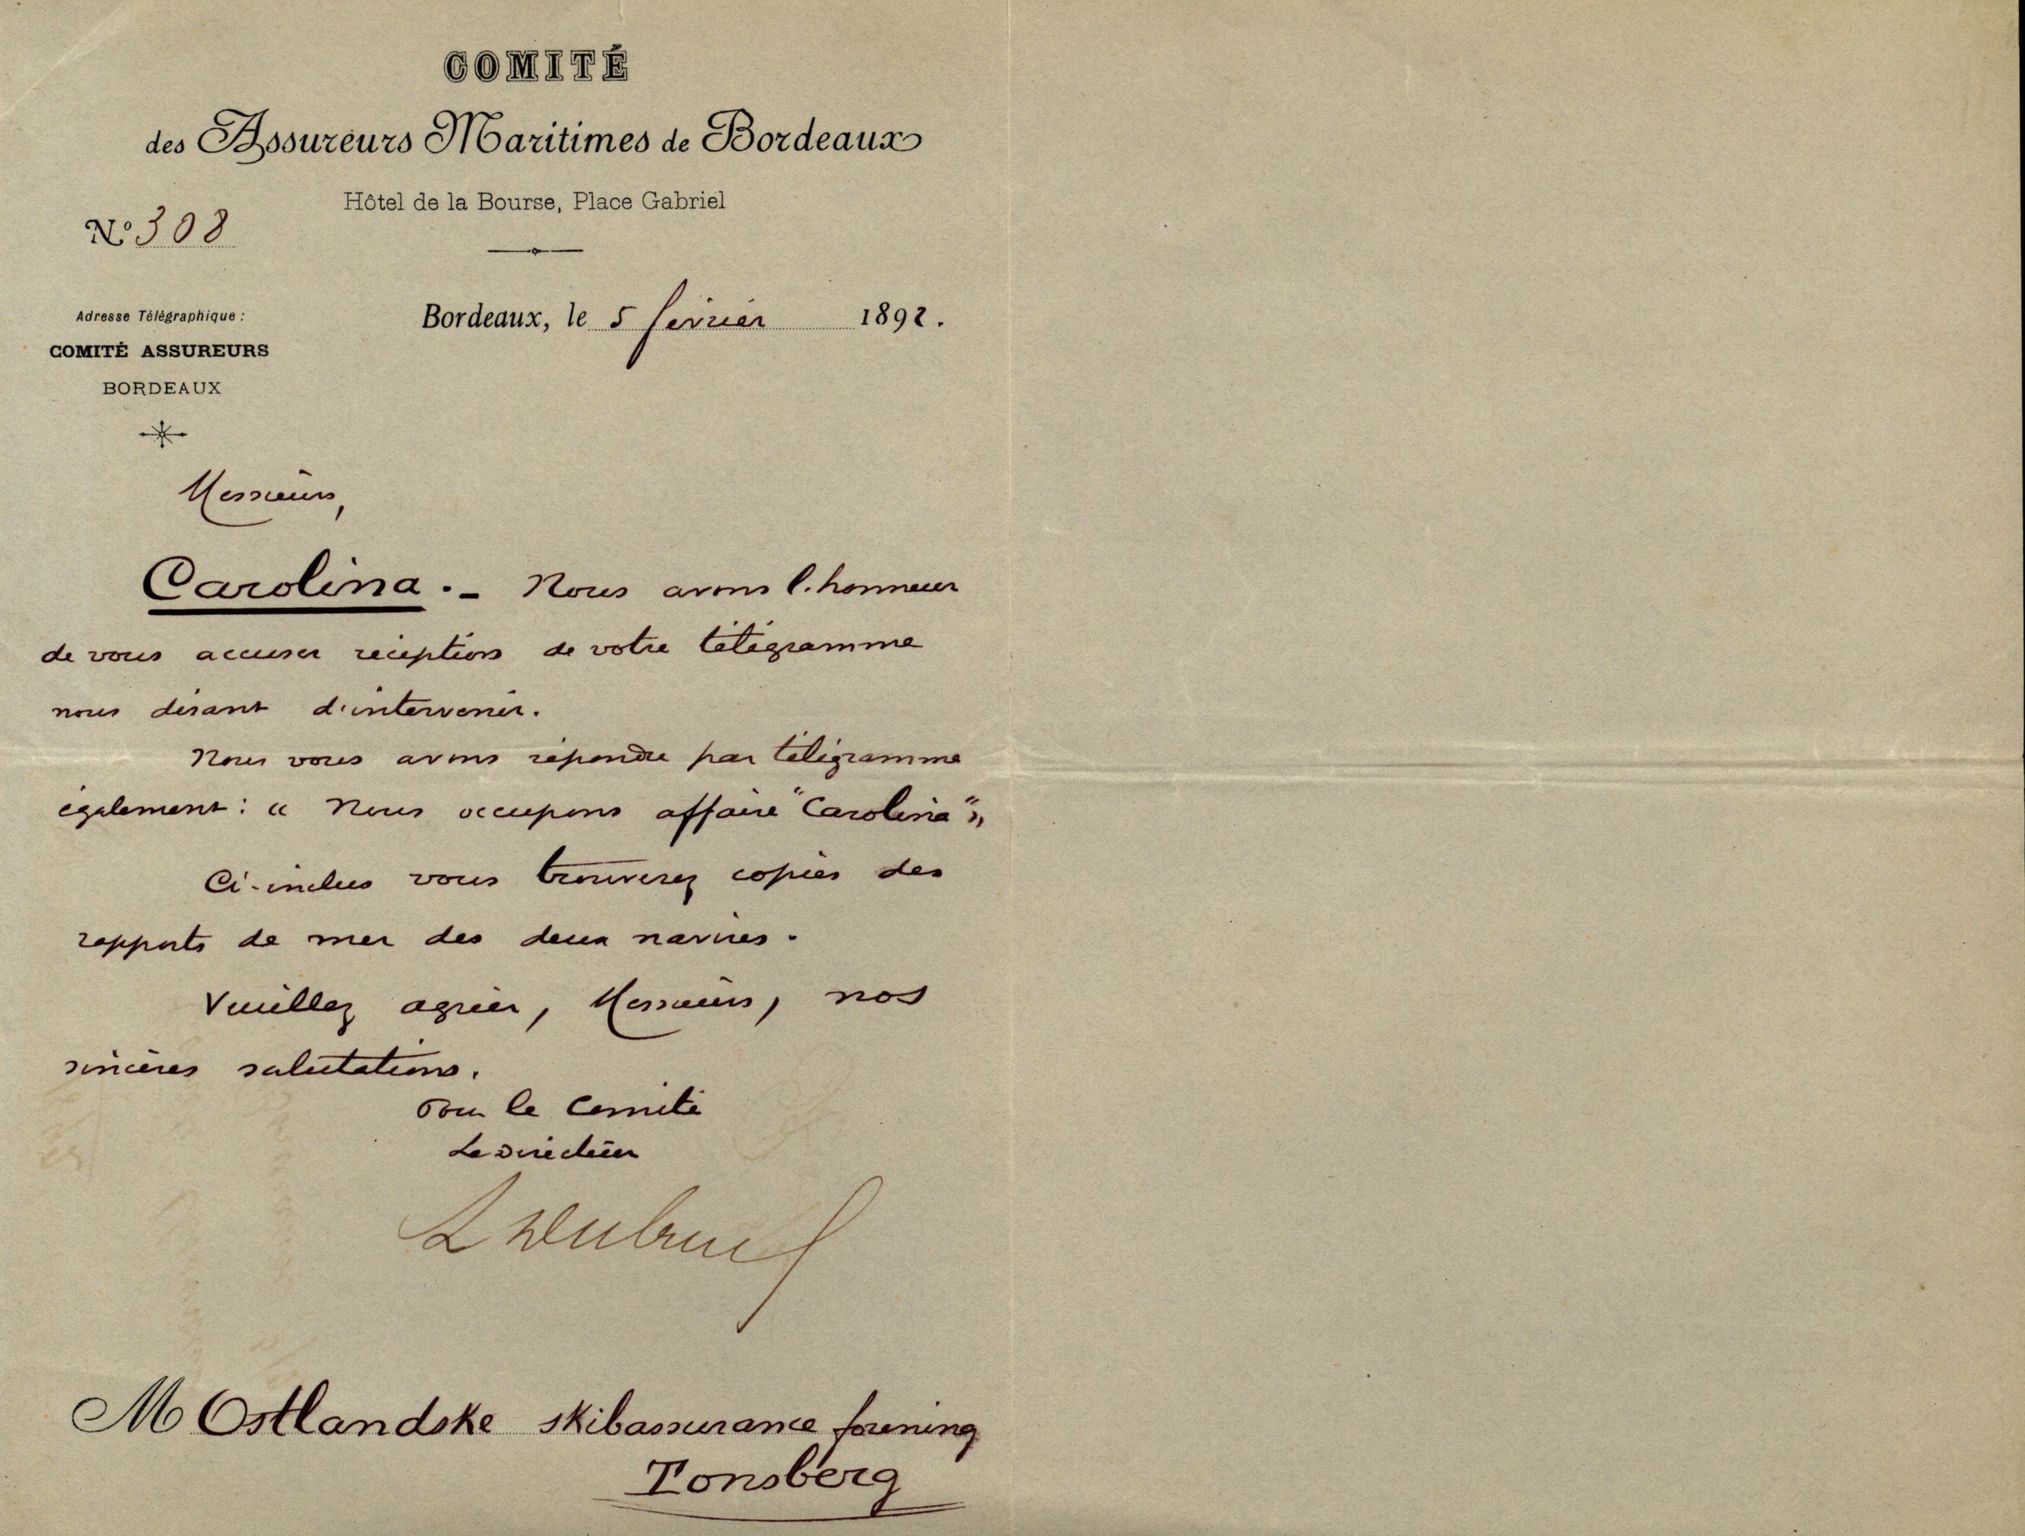 COMITÉ
des Assureurs Maritimes de Bordeaux
Hôtel de la Bourse, Place Gabriel
N.º 308
Bordeaux, le 5 février 1892.
Adresse Télégraphique :
COMITÉ ASSUREURS
BORDEAUX
Messieurs,
Carolina . _ Nous avons l'honneur
de vous accuser réception de votre télégramme
nous disant d'intervenir.
Nous vous avons répondu par télégramme
également : « Nous occupons affaire "Carolina" »
Ci-inclus vous trouverez copies des
rapports de mer des deux navires .
Veuillez agréer, Messieurs, nos
sincères salutations.
Pour le Comité
Le Directeur
M Ostlandske skibassurance forening
Tonsberg